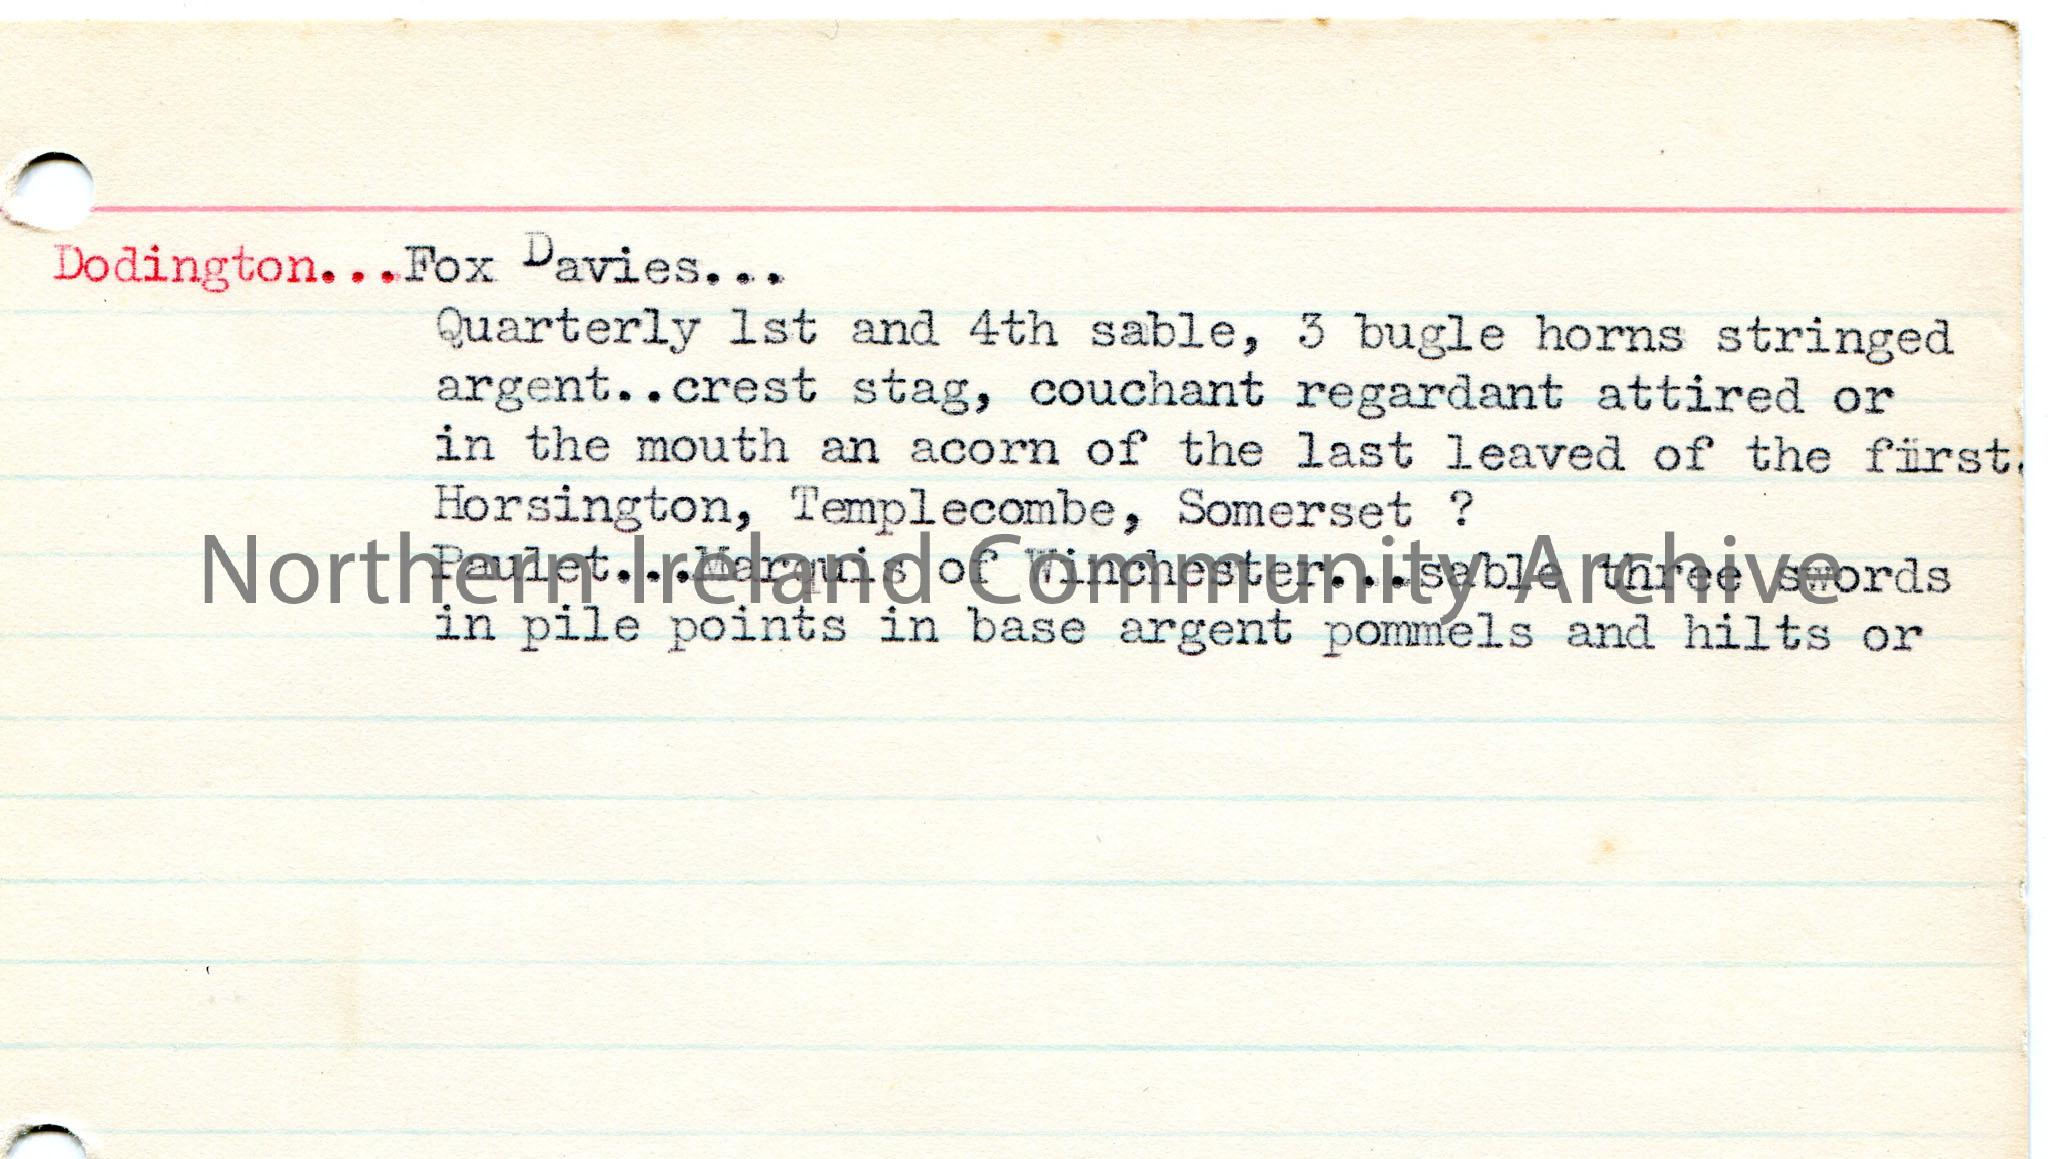 Dodington...Fox Davies...
Quarterly 1st and 4th sable, 3 bugle horns stringed
argent..crest stag, couchant regardant attired or
in the mouth an acorn of the last leaved of the first.
Horsington, Templecombe, Somerset ?
Paulet...Marquis of Winchester...sable three swords
Northern Ireland Community Archive
in pile points in base argent pommels and hilts or